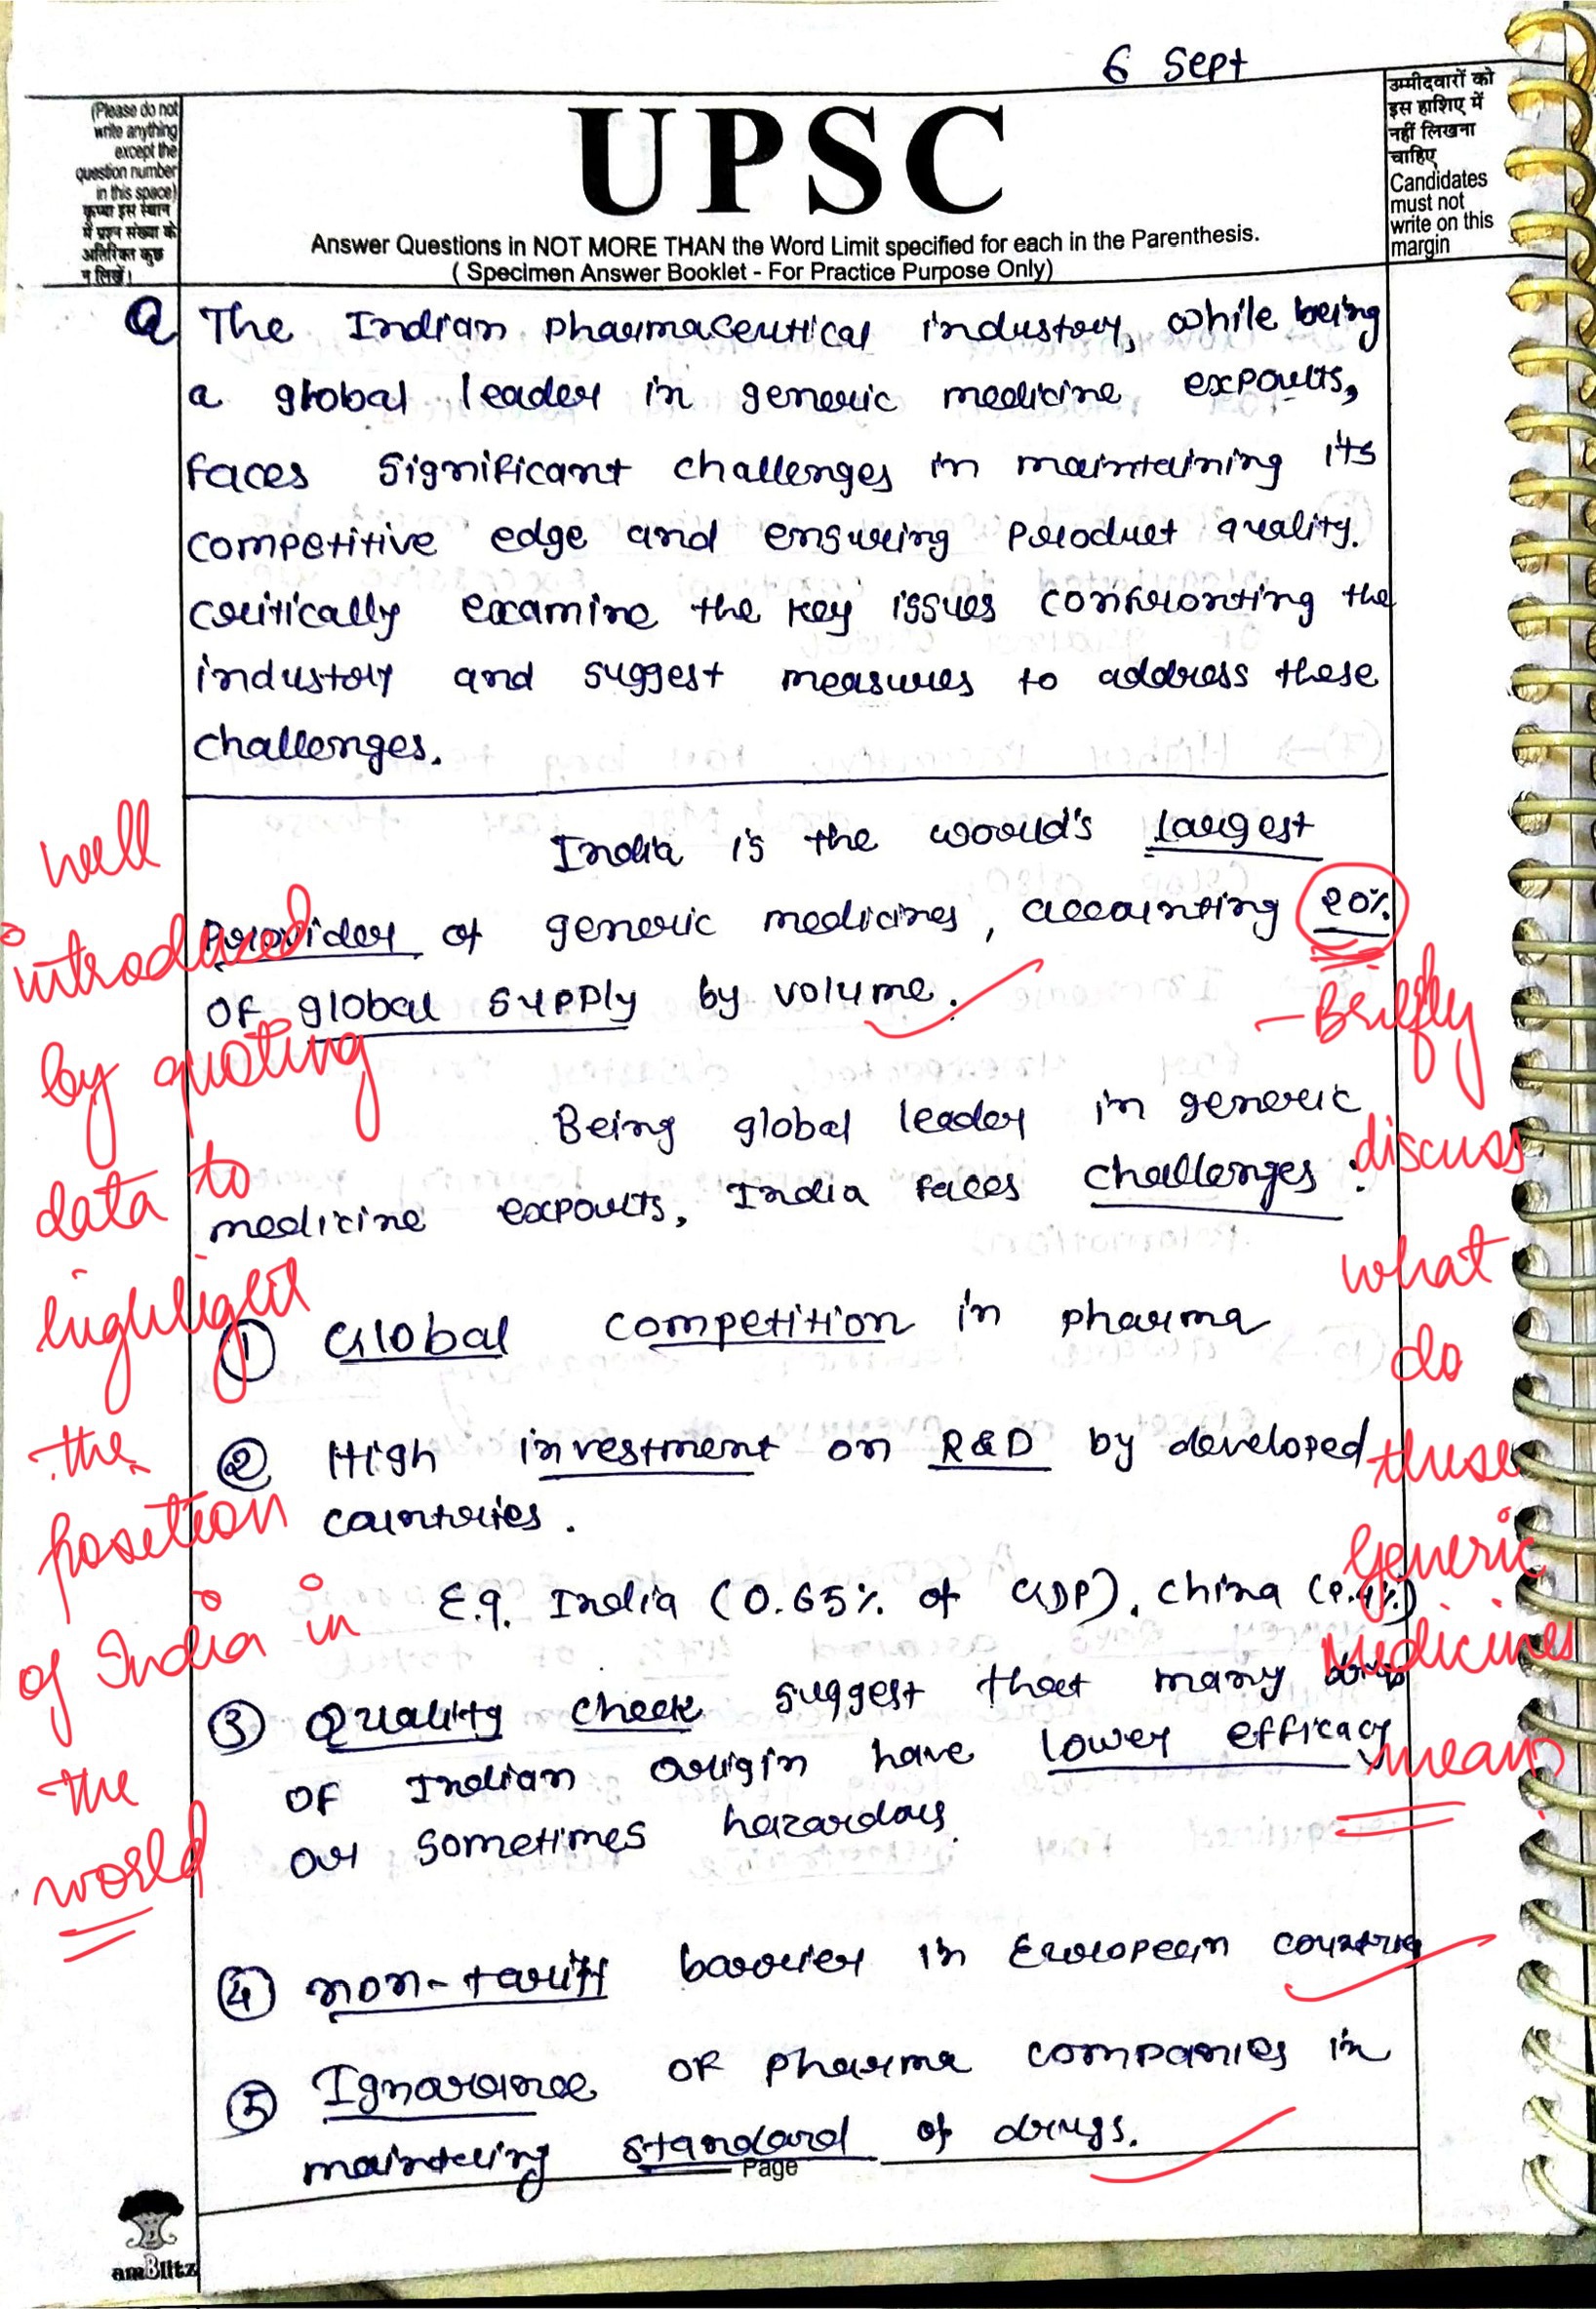 6 Sept
(Please do not
write anything
except the
question number
in this space)
कृप्या इस स्थान
में प्रश्न संख्या के
अतिरिक्त कुछ
न लिखें।
UPSC
Answer Questions in NOT MORE THAN the Word Limit specified for each in the Parenthesis.
( Specimen Answer Booklet - For Practice Purpose Only)
उम्मीदवारों को
इस हाशिए में
नहीं लिखना
चाहिए
Candidates
must not
write on this
margin
Q The Indian pharmaceutical industry, while being
a global leader in generic medicine exports,
faces significant challenges in maintaining its
competitive edge and ensuring product quality.
critically examine the key issues confronting the
industry and suggest measures to address these
challenges.
India is the world's largest
Provider of generic medicines, accounting 20%
of global supply by volume.
Being global leader in generic
medicine exports, India faces challenges :
① Global competition in pharma
② High investment on R&D by developed
countries.
E.g. India (0.65% of GDP), China (2.4%)
③ Quality check suggest that many
of Indian origin have lower efficacy
or sometimes hazardous.
④ non-tariff barrier in European countries
⑤ Ignorance of pharma companies in
maintaing standard of drugs.
well
introduced
by quoting
data to
highlight
the
position
of India in
the
world
- Briefly
discuss
what
do
these
generic
medicines
means
Page
amBlitz